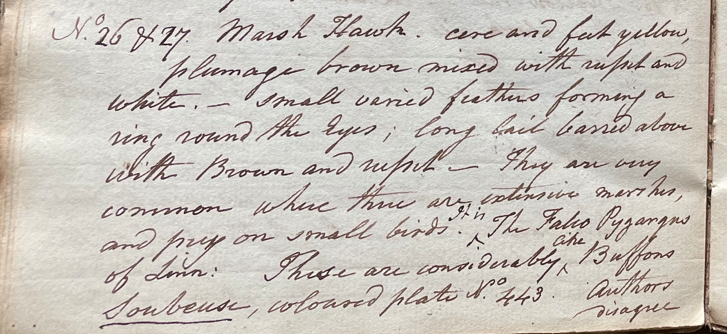 No. 26 & 27. Marsh Hawk. cere and feet yellow,
plumage brown mixed with russet and
white. — small varied feathers forming a
ring round the Eyes; long tail barred above
with Brown and russet — They are very
common where there are extensive marshes,
and prey on small birds. It is The Falco Pygargus
of Linn: These are considerably like Buffons
Soubeuse, coloured plate No. 443. Authors
disagree